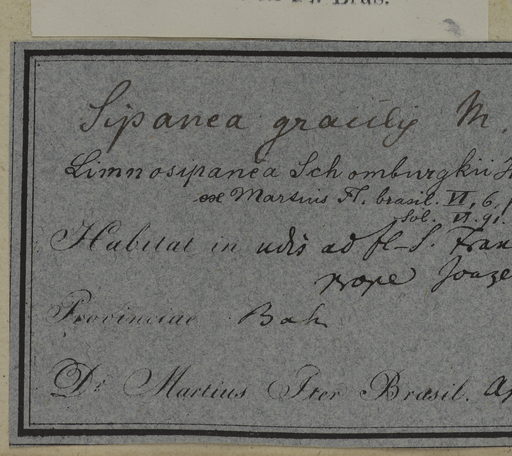 Bras.
Sipanea gracilis M.
Limnosipanea Schomburgkii
ex Martius Fl. brasil. VI, 6,
Habitat in udis ad fl. S. Fran
prope Joaze
Provinciae Bah
Dr Martius Iter Brasil.